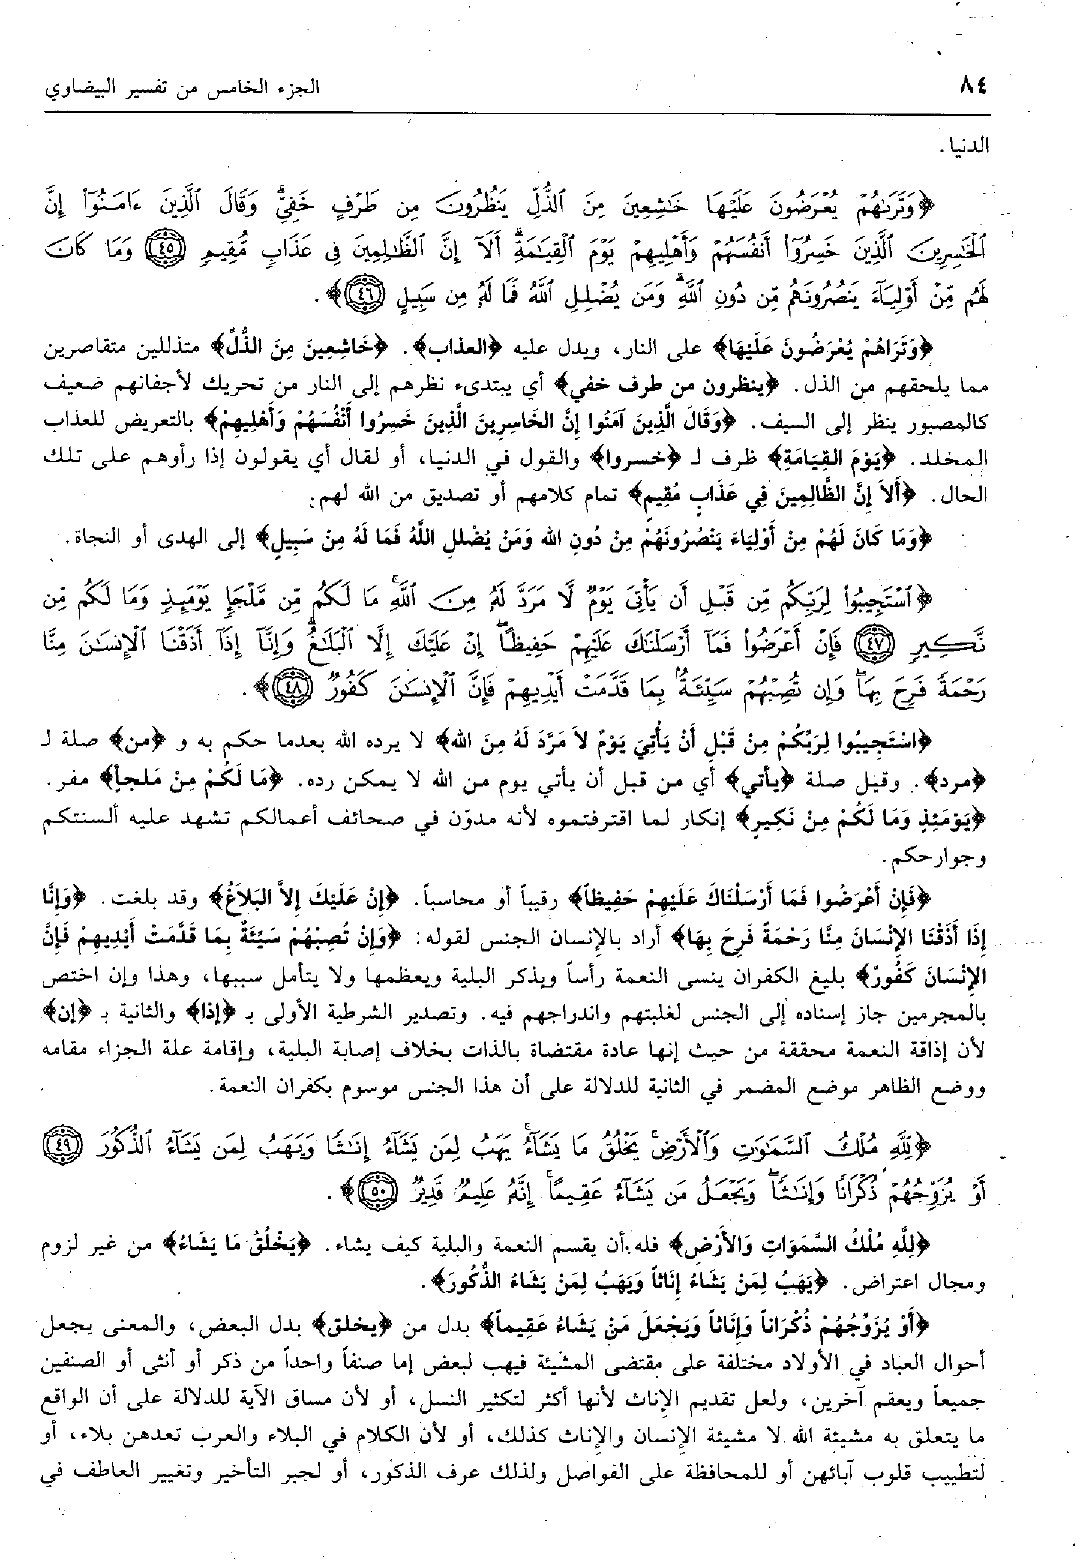 ٨٤
الجزء الخامس من تفسير البيضاوي
الدنيا.
﴿وَتَرَىٰهُمْ يُعْرَضُونَ عَلَيْهَا خَٰشِعِينَ مِنَ ٱلذُّلِّ يَنظُرُونَ مِن طَرْفٍ خَفِىٍّ وَقَالَ ٱلَّذِينَ ءَامَنُوٓا۟ إِنَّ
ٱلْخَٰسِرِينَ ٱلَّذِينَ خَسِرُوٓا۟ أَنفُسَهُمْ وَأَهْلِيهِمْ يَوْمَ ٱلْقِيَٰمَةِ أَلَآ إِنَّ ٱلظَّٰلِمِينَ فِى عَذَابٍ مُّقِيمٍ ٤٥ وَمَا كَانَ
لَهُم مِّنْ أَوْلِيَآءَ يَنصُرُونَهُم مِّن دُونِ ٱللَّهِ وَمَن يُضْلِلِ ٱللَّهُ فَمَا لَهُۥ مِن سَبِيلٍ ٤٦﴾.
﴿وَتَرَاهُمْ يُعْرَضُونَ عَلَيْهَا﴾ على النار، ويدل عليه ﴿العذاب﴾. ﴿خَاشِعِينَ مِنَ الذُّلِّ﴾ متذللين متقاصرين
مما يلحقهم من الذل. ﴿ينظرون من طرف خفي﴾ أي يبتدىء نظرهم إلى النار من تحريك لأجفانهم ضعيف
كالمصبور ينظر إلى السيف. ﴿وَقَالَ الَّذِينَ آمَنُوا إِنَّ الخَاسِرِينَ الَّذِينَ خَسِرُوا أَنْفُسَهُمْ وَأَهْلِيهِمْ﴾ بالتعريض للعذاب
المخلد. ﴿يَوْمَ القِيَامَةِ﴾ ظرف لـ ﴿خسروا﴾ والقول في الدنيا، أو لقال أي يقولون إذا رأوهم على تلك
الحال. ﴿أَلاَ إِنَّ الظَّالِمِينَ فِي عَذَابٍ مُقِيمٍ﴾ تمام كلامهم أو تصديق من الله لهم.
﴿وَمَا كَانَ لَهُمْ مِنْ أَوْلِيَاءَ يَنْصُرُونَهُمْ مِنْ دُونِ الله وَمَنْ يُضْلِلِ اللَّهُ فَمَا لَهُ مِنْ سَبِيلٍ﴾ إلى الهدى أو النجاة.
﴿ٱسْتَجِيبُوا۟ لِرَبِّكُم مِّن قَبْلِ أَن يَأْتِىَ يَوْمٌ لَّا مَرَدَّ لَهُۥ مِنَ ٱللَّهِ مَا لَكُم مِّن مَّلْجَإٍ يَوْمَئِذٍ وَمَا لَكُم مِّن
نَّكِيرٍ ٤٧ فَإِنْ أَعْرَضُوا۟ فَمَآ أَرْسَلْنَٰكَ عَلَيْهِمْ حَفِيظًا إِنْ عَلَيْكَ إِلَّا ٱلْبَلَٰغُ وَإِنَّآ إِذَآ أَذَقْنَا ٱلْإِنسَٰنَ مِنَّا
رَحْمَةً فَرِحَ بِهَا وَإِن تُصِبْهُمْ سَيِّئَةٌۢ بِمَا قَدَّمَتْ أَيْدِيهِمْ فَإِنَّ ٱلْإِنسَٰنَ كَفُورٌ ٤٨﴾.
﴿اسْتَجِيبُوا لِرَبِّكُمْ مِنْ قَبْلِ أَنْ يَأْتِيَ يَوْمٌ لاَ مَرَدَّ لَهُ مِنَ الله﴾ لا يرده الله بعدما حكم به و ﴿من﴾ صلة لـ
﴿مرد﴾. وقيل صلة ﴿يأتي﴾ أي من قبل أن يأتي يوم من الله لا يمكن رده. ﴿مَا لَكُمْ مِنْ مَلجأ﴾ مفر.
﴿يَوْمَئِذٍ وَمَا لَكُمْ مِنْ نَكِيرٍ﴾ إنكار لما اقترفتموه لأنه مدوّن في صحائف أعمالكم تشهد عليه ألسنتكم
وجوارحكم.
﴿فَإِنْ أَعْرَضُوا فَمَا أَرْسَلْنَاكَ عَلَيهِمْ حَفِيظاً﴾ رقيباً أو محاسباً. ﴿إِنْ عَلَيْكَ إِلاَّ البَلاَغُ﴾ وقد بلغت. ﴿وَإِنَّا
إِذَا أَذَقْنَا الإِنْسَانَ مِنَّا رَحْمَةً فَرِحَ بِهَا﴾ أراد بالإنسان الجنس لقوله: ﴿وَإِنْ تُصِبْهُمْ سَيِّئَةٌ بِمَا قَدَّمَتْ أَيْدِيهِمْ فَإِنَّ
الإِنْسَانَ كَفُورٌ﴾ بليغ الكفران ينسى النعمة رأساً ويذكر البلية ويعظمها ولا يتأمل سببها، وهذا وإن اختص
بالمجرمين جاز إسناده إلى الجنس لغلبتهم واندراجهم فيه. وتصدير الشرطية الأولى بـ ﴿إذا﴾ والثانية بـ ﴿إن﴾
لأن إذاقة النعمة محققة من حيث إنها عادة مقتضاة بالذات بخلاف إصابة البلية، وإقامة علة الجزاء مقامه
ووضع الظاهر موضع المضمر في الثانية للدلالة على أن هذا الجنس موسوم بكفران النعمة.
﴿لِلَّهِ مُلْكُ ٱلسَّمَٰوَٰتِ وَٱلْأَرْضِ يَخْلُقُ مَا يَشَآءُ يَهَبُ لِمَن يَشَآءُ إِنَٰثًا وَيَهَبُ لِمَن يَشَآءُ ٱلذُّكُورَ ٤٩
أَوْ يُزَوِّجُهُمْ ذُكْرَانًا وَإِنَٰثًا وَيَجْعَلُ مَن يَشَآءُ عَقِيمًا إِنَّهُۥ عَلِيمٌ قَدِيرٌ ٥٠﴾.
﴿لِلَّهِ مُلْكُ السَّمَوَاتِ وَالأَرْضِ﴾ فله أن يقسم النعمة والبلية كيف يشاء. ﴿يَخْلُقُ مَا يَشَاءُ﴾ من غير لزوم
ومجال اعتراض. ﴿يَهَبُ لِمَنْ يَشَاءُ إِنَاثاً وَيَهَبُ لِمَنْ يَشَاءُ الذُّكُورَ﴾.
﴿أَوْ يُزَوِّجُهُمْ ذُكْرَاناً وَإِنَاثاً وَيَجْعَلَ مَنْ يَشَاءُ عَقِيماً﴾ بدل من ﴿يخلق﴾ بدل البعض، والمعنى يجعل
أحوال العباد في الأولاد مختلفة على مقتضى المشيئة فيهب لبعض إما صنفاً واحداً من ذكر أو أنثى أو الصنفين
جميعاً ويعقم آخرين، ولعل تقديم الإناث لأنها أكثر لتكثير النسل، أو لأن مساق الآية للدلالة على أن الواقع
ما يتعلق به مشيئة الله لا مشيئة الإنسان والإناث كذلك، أو لأن الكلام في البلاء والعرب تعدهن بلاء، أو
لتطييب قلوب آبائهن أو للمحافظة على الفواصل ولذلك عرف الذكور، أو لجبر التأخير وتغيير العاطف في